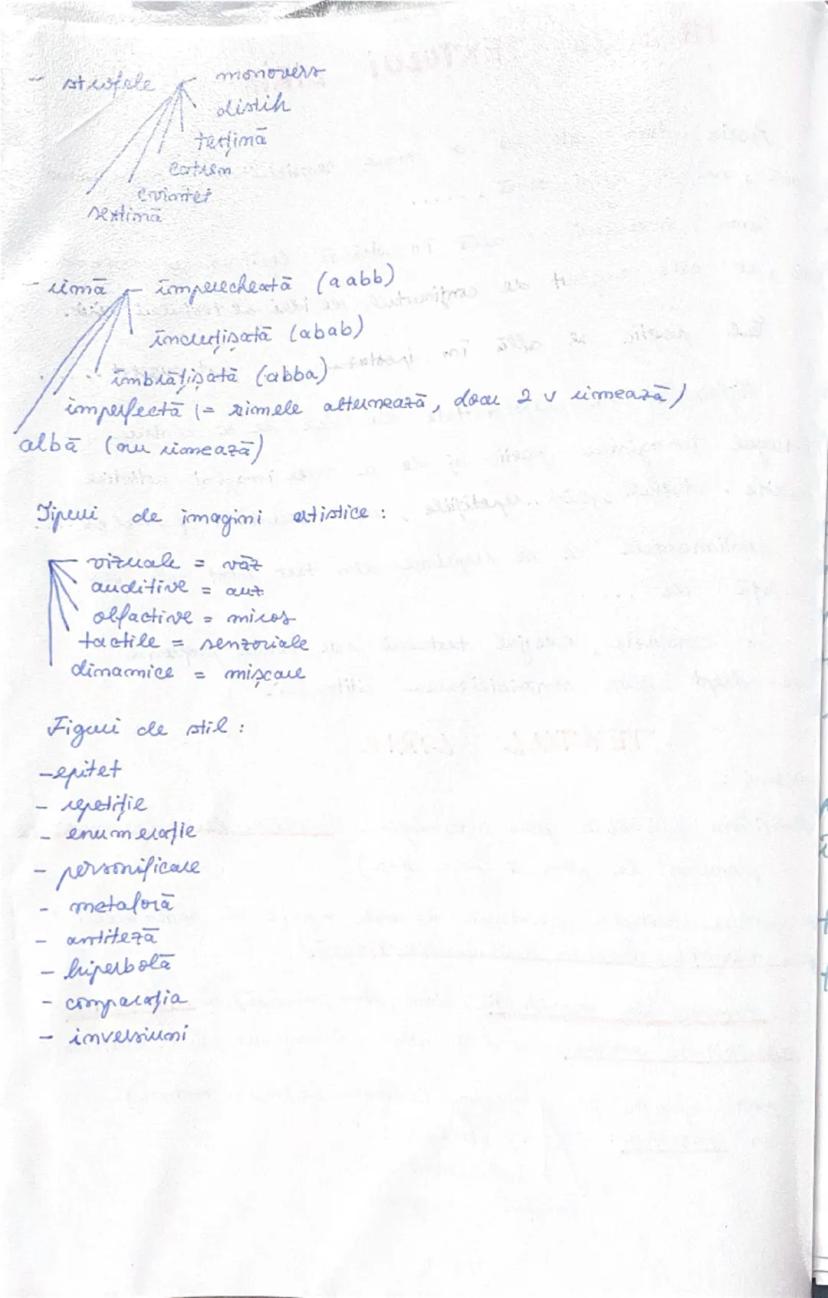 - strofele - monovers
distih
terțină
catren
cvintet
sextimă
- rimă - împerecheată (aabb)
încrucișată (abab)
îmbrățișată (abba)
imperfectă (= rimele alternează, doar 2 v rimează)
albă (nu rimează)
Tipuri de imagini artistice :
- vizuale = văz
auditive = auz
olfactive = miros
tactile = senzoriale
dinamice = mișcare
Figuri de stil :
- epitet
- repetiție
- enumerație
- personificare
- metaforă
- antiteză
- hiperbolă
- comparația
- inversiuni